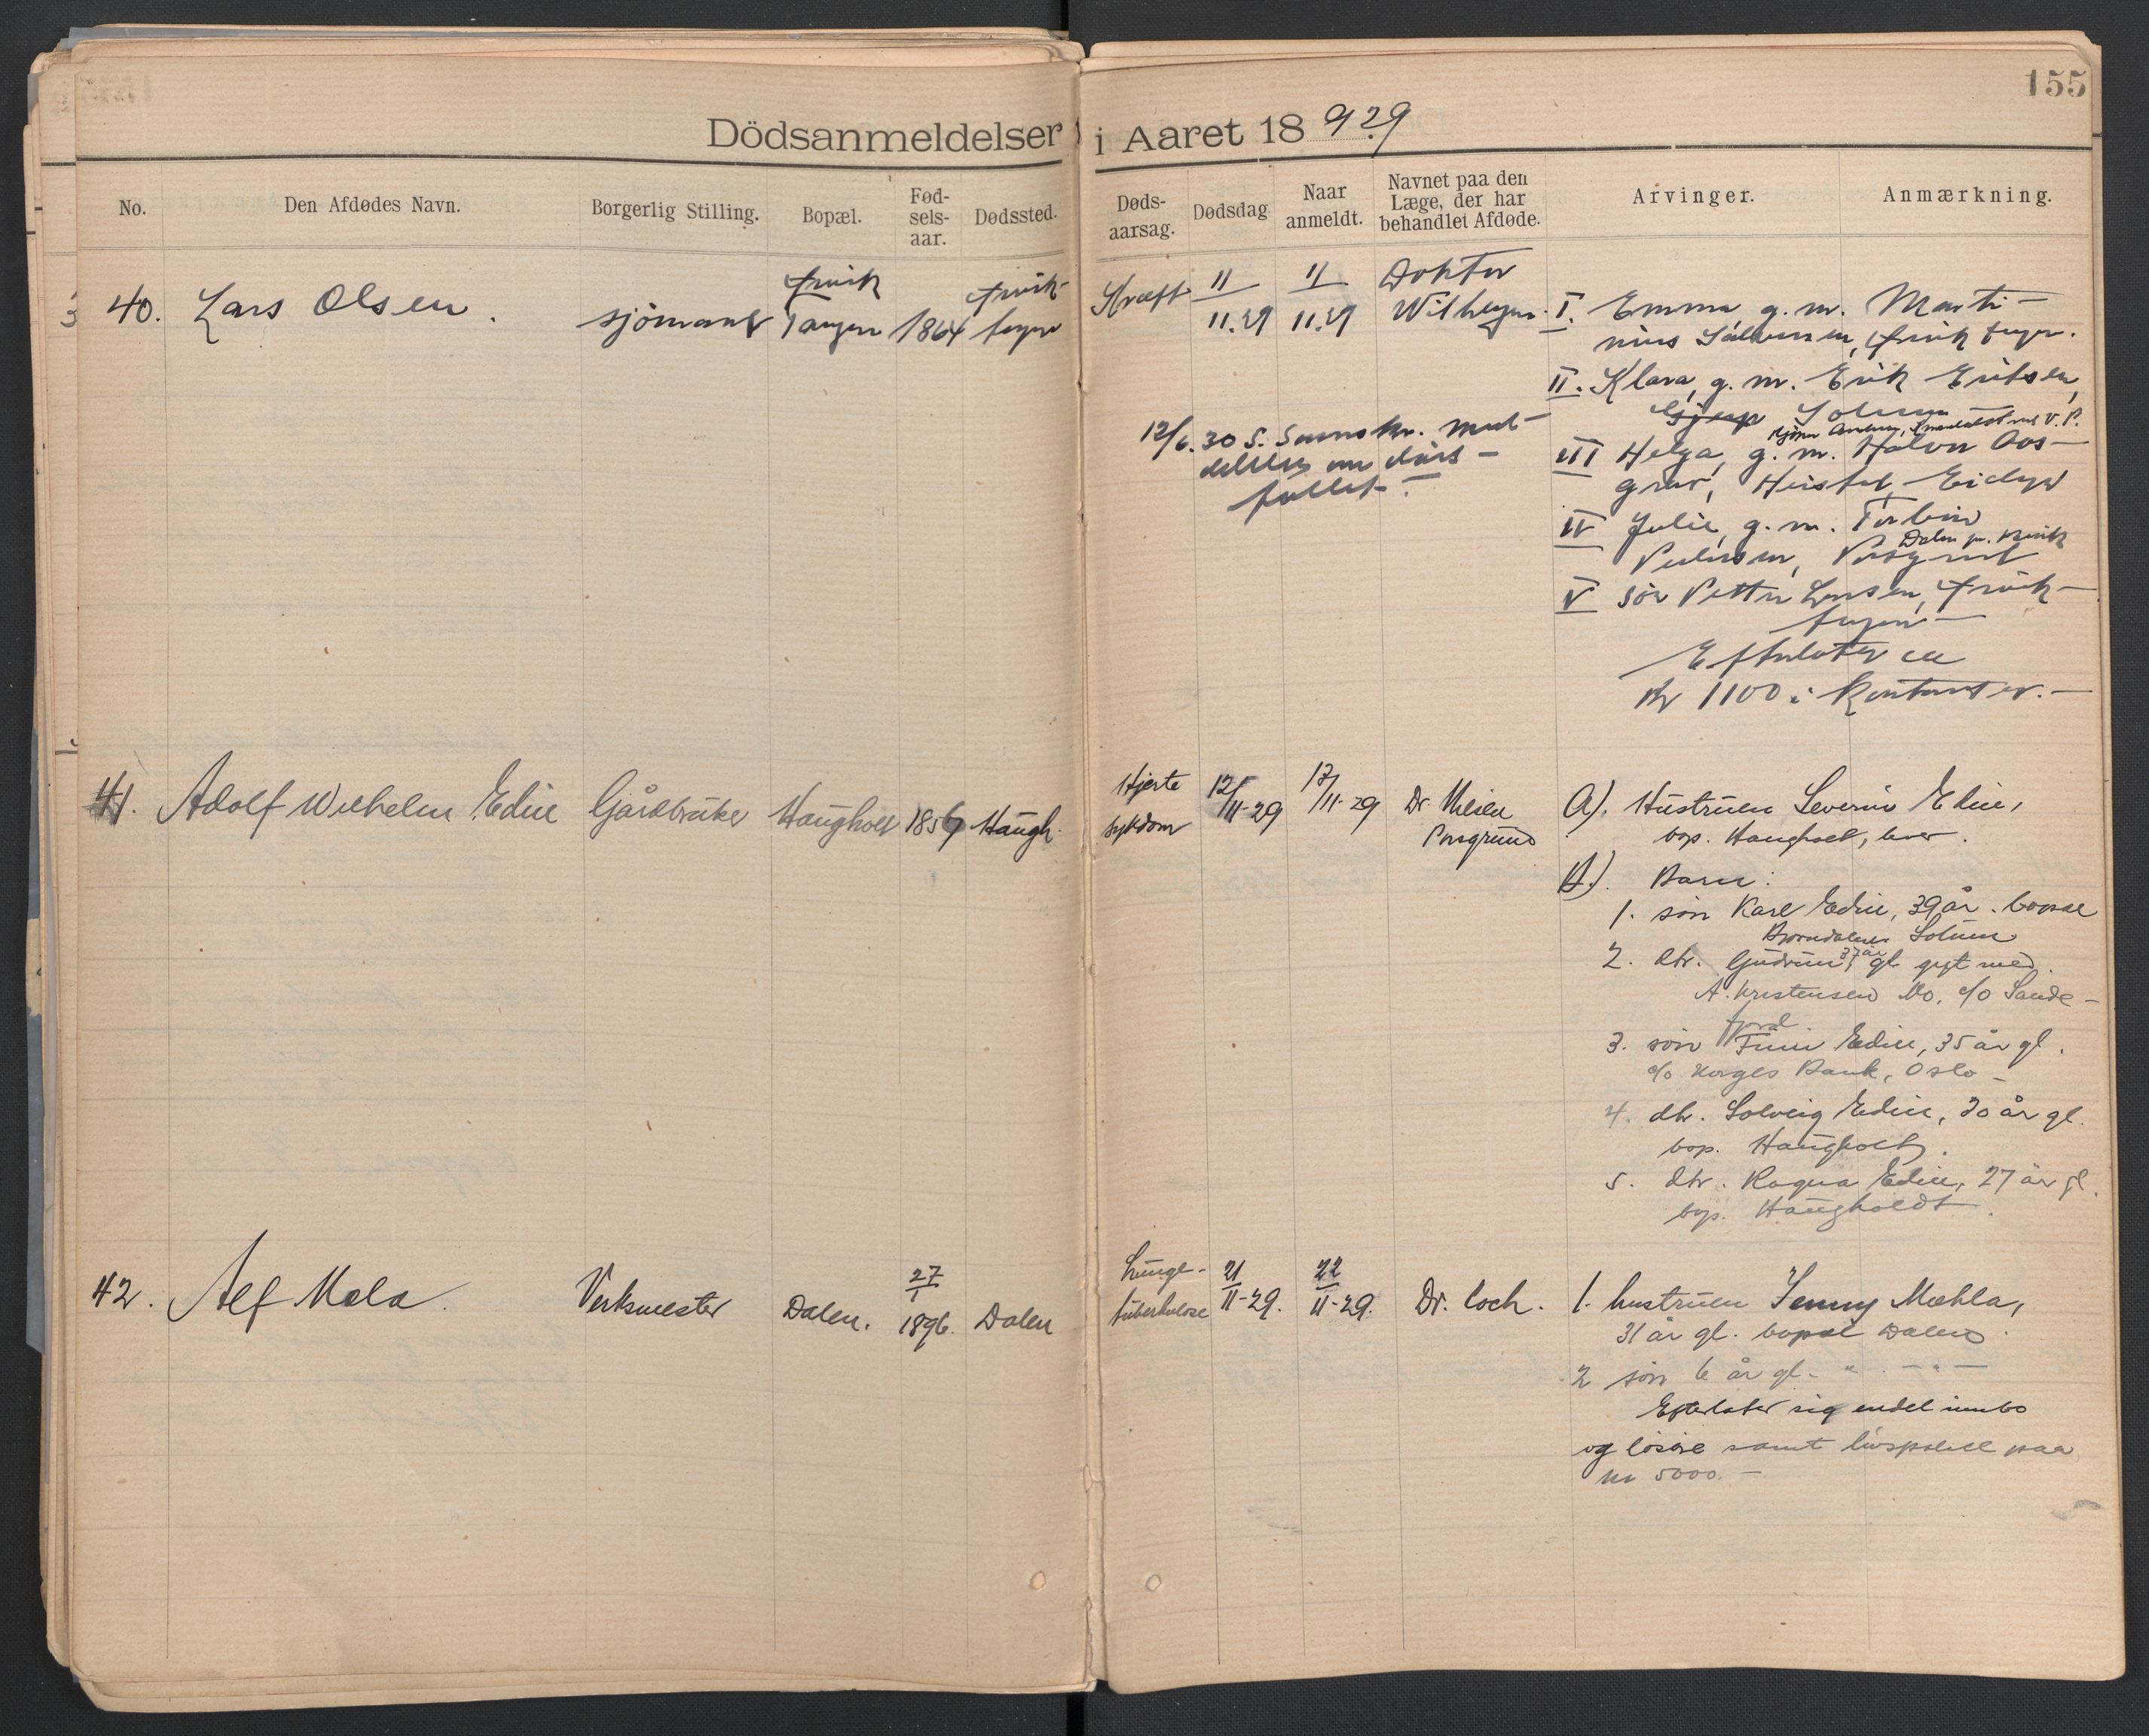 155
Dödsanmeldelser i Aaret 18 929
No.
Den Afdødes Navn.
Borgerlig Stilling.
Bopæl.
Fød-
sels-
aar.
Dødssted.
Døds-
aarsag.
Dødsdag
Naar
anmeldt.
Navnet paa den
Læge, der har
behandlet Afdøde.
Arvinger.
Anmærkning.
40. Lars Olsen. sjömand Tangen 1864
Kræft 11/11.29 11/11.29 Doktor
I. Emma g. m. Marti-
nius
II. Klara, g. m. Erik Eriksen,
Gjerp
III Helga, g. m. Halvor Aas-
grav,
IV Julie, g. m.
Pedersen, Porsgrund
V sön Petter Larsen,
Efterlater ca
Kr 1100 i kontanter.-
12/6.30 S. med-
delelse om döds-
fallet.
41. Adolf Wilhelm Edin Gårdbruker Haugholt 1856 Haugh.
Hjerte
sykdom
12/11-29 12/11-29
Dr. Nilsen
Porsgrund
A). Hustruen Severin Edin,
bop. Haugholt, lever.
B). Barn:
1. sön Karl Edin, 39 år. bopæl
Solum
2. dtr. Gudrun, 37 år gl. gift med
A. Kristensen Mo, c/o Sande-
fjord
3. sön Finn Edin, 35 år gl.
c/o Norges Bank, Oslo -
4. dtr. Solveig Edin, 30 år gl.
bop. Haugholt.
5. dtr. Ragna Edin, 27 år gl.
bop. Haugholdt.
42. Alf Mæla. Verksmester Dalen. 27/1 1896. Dalen
Lunge-
tuberkulose
21/11-29. 22/11-29. Dr. Coch.
1. hustruen Jenny Mæhla,
31 år gl. bopæl Dalen.
2 sön 6 år gl. " - " -
Efterlater sig endel innbo
og lösöre samt livspolise paa
kr 5000.-